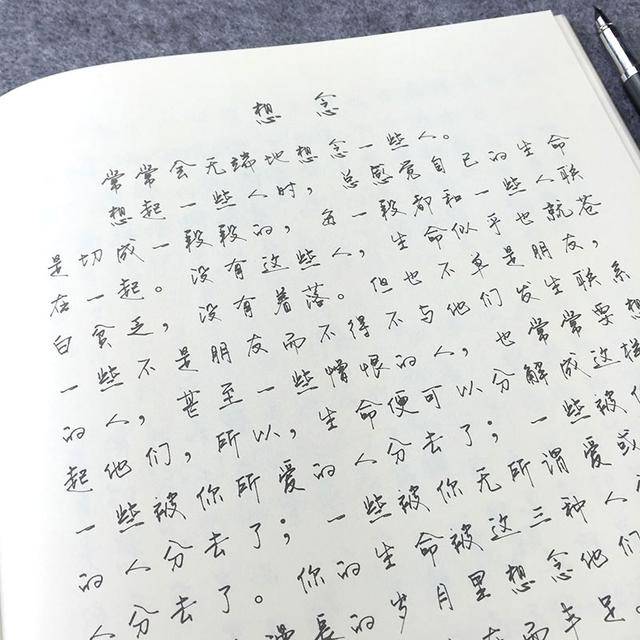 想 念
常常会无端地想念一些人。
想起一些人时，总感觉自己的生命
是切成一段段的，每一段都和一些人联
在一起。没有这些人，生命似乎也就苍
白贫乏，没有着落。但也不单是朋友，
一些不是朋友而不得不与他们发生联系
的人，甚至一些憎恨的人，也常常要想
起他们，所以，生命便可以分解成这样
一些被你所爱的人分去了；一些被你
的人分去了；一些被你无所谓爱或
人分去了。你的生命被这三种人
漫长的岁月里想念他们
而丰足。